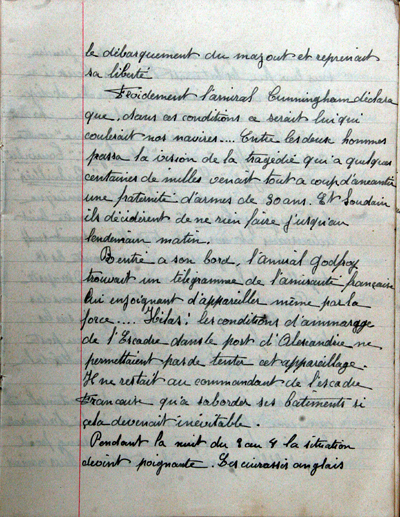 le débarquement du mazout et reprenait
sa liberté
Froidement l'amiral Cunningham déclara
que, dans ces conditions ce serait lui qui
coulerait nos navires.... Entre les deux hommes
passa la vision de la tragédie qui a quelques
centaines de milles venait tout a coup d'anéantir
une fraternité d'armes de 30 ans. Et Soudain
ils décidèrent de ne rien faire jusqu'au
lendemain matin.
Rentré a son bord, l'amiral Godfroy
trouvait un télégramme de l'amirauté française
lui enjoignant d'appareiller même par la
force.... Hélas! les conditions d'ammarage
de l'Escadre dans le port d'Alexandrie ne
permettaient pas de tenter cet appareillage.
Il ne restait au commandant de l'escadre
Francaise qu'a saborder ses batiments si
cela devenait inévitable.
Pendant la nuit du 3 au 4 la situation
devint poignante. Les cuirassés anglais